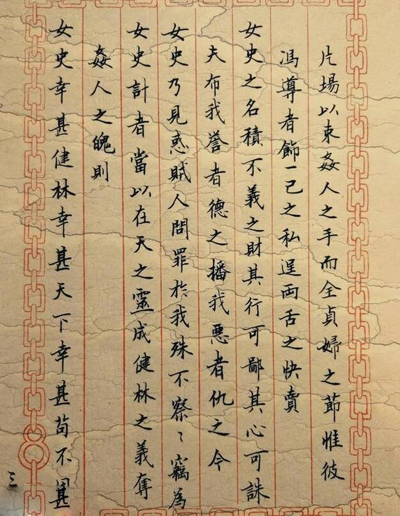 片場以束姦人之手而全貞婦之節惟彼
馮尊者飾一己之私逞兩舌之快賣
女史之名積不義之財其行可鄙其心可誅
夫布我譽者德之播我惡者仇之今
女史乃見惑賊人問罪於我殊不察〻竊為
女史計者當以在天之靈成健林之義奪
姦人之魄則
女史幸甚健林幸甚天下幸甚苟不甚
三